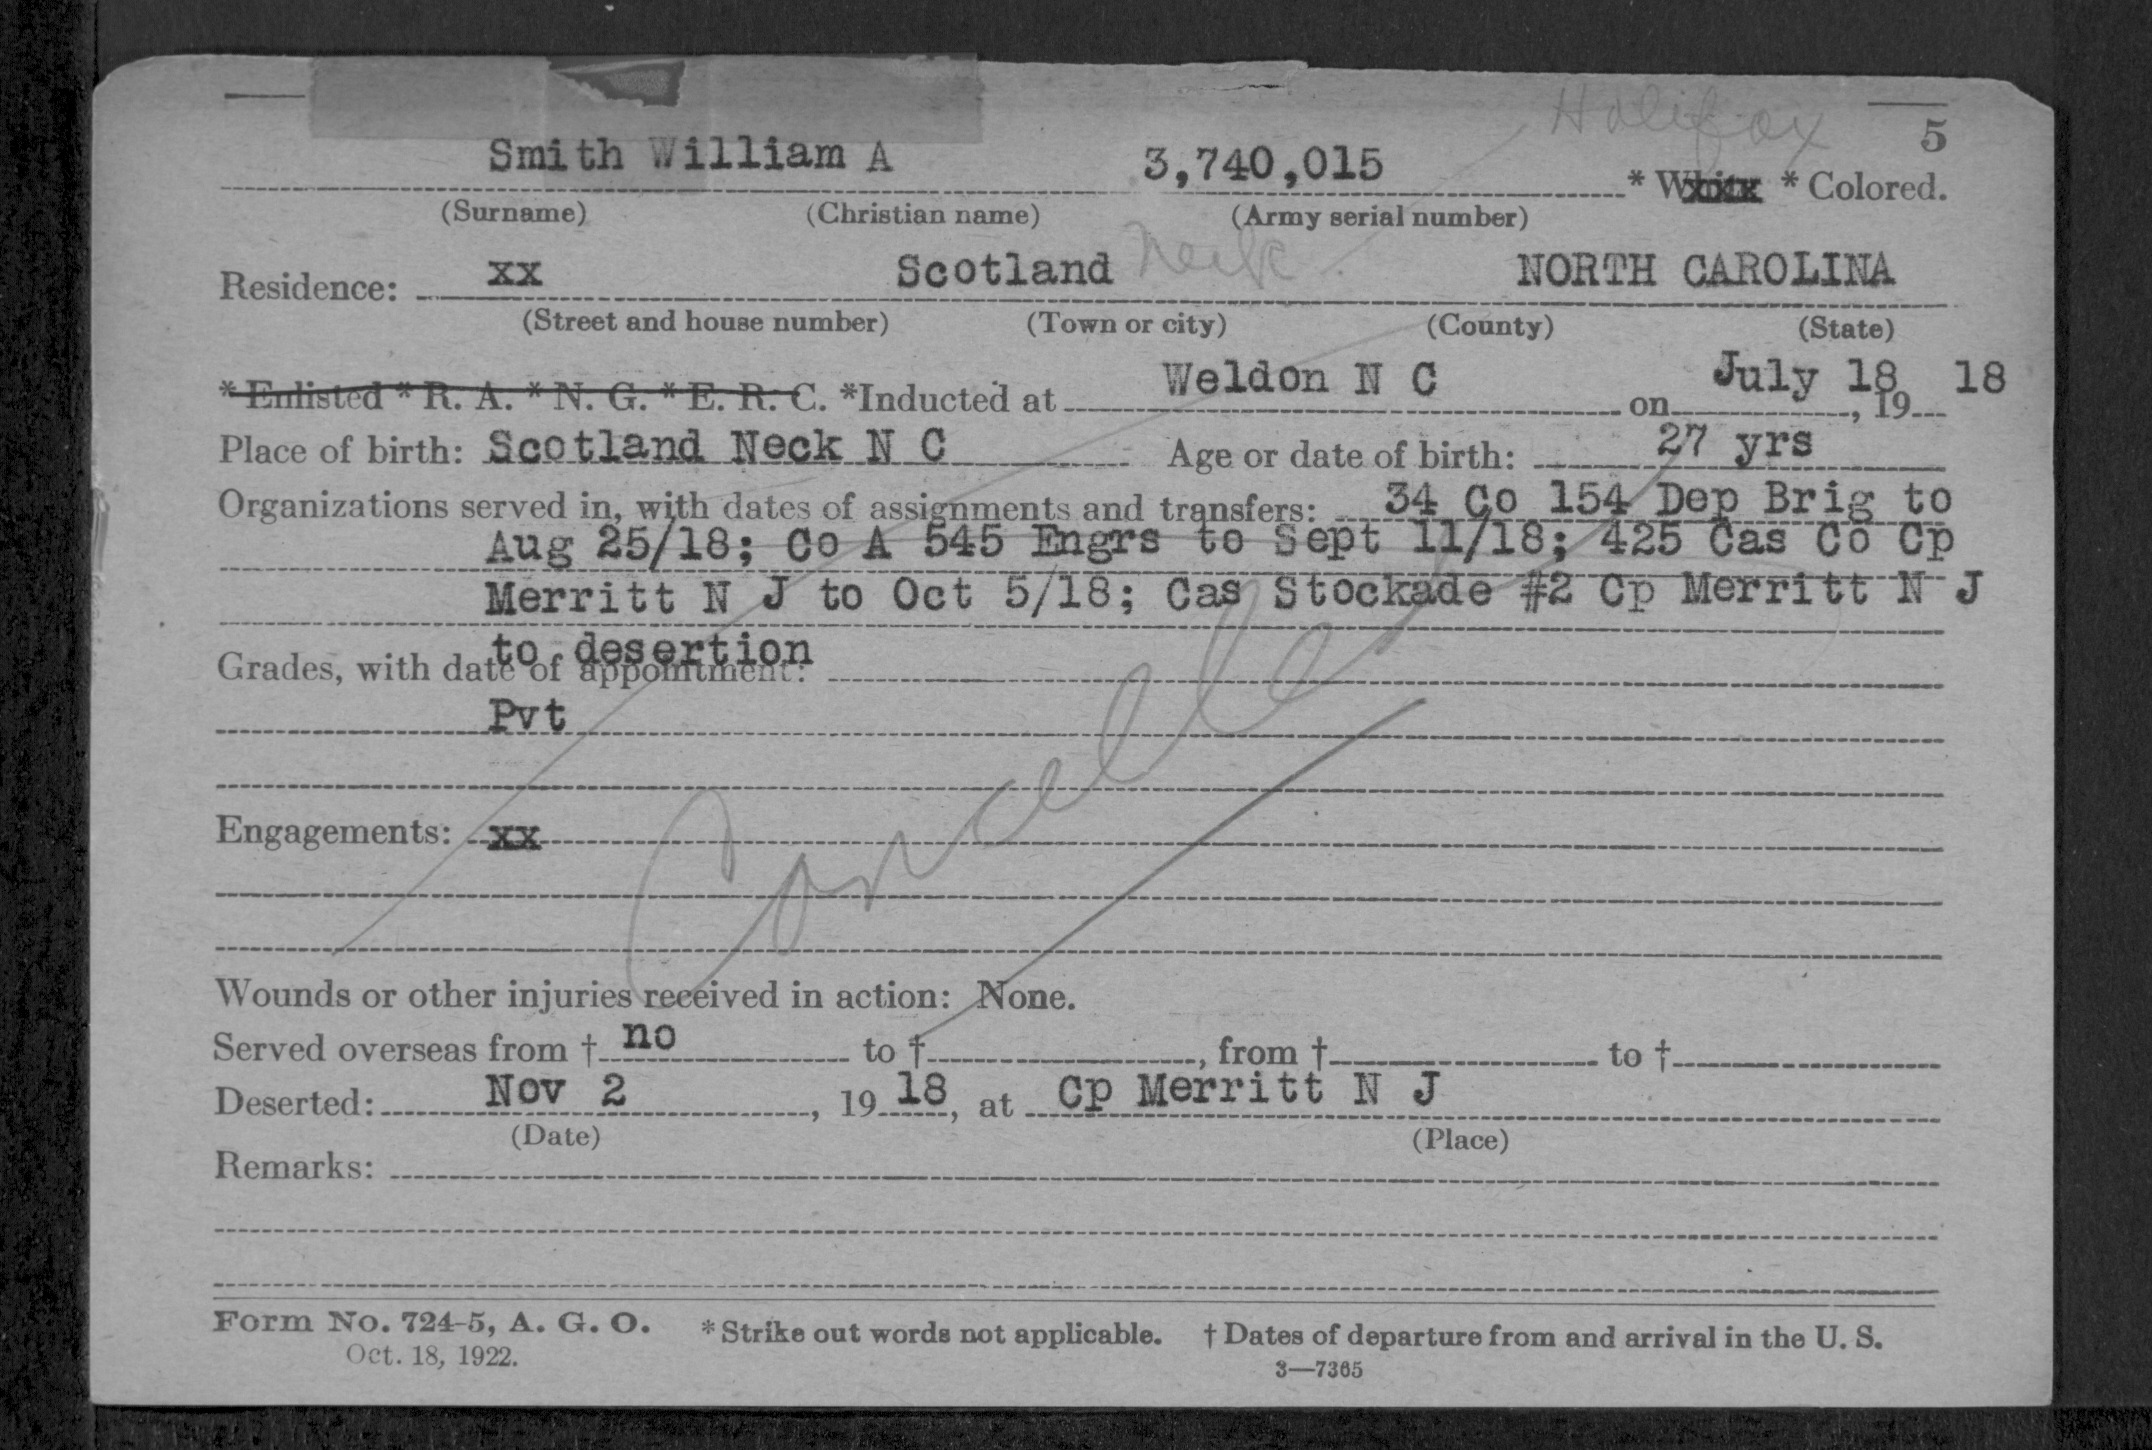 Halifax
5
Smith William A 3,740,015 * White * Colored.
(Surname) (Christian name) (Army serial number)
Residence: xx Scotland Neck. NORTH CAROLINA
(Street and house number) (Town or city) (County) (State)
* Enlisted * R. A. * N. G. * E. R. C. *Inducted at Weldon N C on July 18, 19 18
Place of birth: Scotland Neck N C Age or date of birth: 27 yrs
Organizations served in, with dates of assignments and transfers: 34 Co 154 Dep Brig to
Aug 25/18; Co A 545 Engrs to Sept 11/18; 425 Cas Co Cp
Merritt N J to Oct 5/18; Cas Stockade #2 Cp Merritt N J
to desertion
Grades, with date of appointment:
Pvt
Cancelled
Engagements: xx
Wounds or other injuries received in action: None.
Served overseas from † no to †, from † to †
Deserted: Nov 2, 19 18, at Cp Merritt N J
(Date) (Place)
Remarks:
Form No. 724-5, A. G. O. * Strike out words not applicable. † Dates of departure from and arrival in the U. S.
Oct. 18, 1922. 3—7365